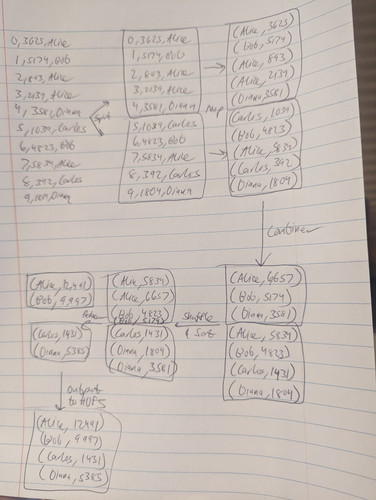 0, 3623, Alice
1, 5174, Bob
2, 893, Alice
3, 2139, Alice
4, 3581, Diana
5, 1039, Carlos
6, 4823, Bob
7, 5834, Alice
8, 392, Carlos
9, 1804, Diana
Split
0, 3625, Alice
1, 5174, Bob
2, 893, Alice
3, 2139, Alice
4, 3581, Diana
5, 1039, Carlos
6, 4823, Bob
7, 5834, Alice
8, 392, Carlos
9, 1804, Diana
map
(Alice, 3625)
(Bob, 5174)
(Alice, 893)
(Alice, 2139)
(Diana, 3581)
(Carlos, 1039)
(Bob, 4823)
(Alice, 5834)
(Carlos, 392)
(Diana, 1804)
Combiner
(Alice, 6657)
(Bob, 5174)
(Diana, 3581)
(Alice, 5834)
(Bob, 4823)
(Carlos, 1431)
(Diana, 1804)
Shuffle
& Sort
(Alice, 5834)
(Alice, 6657)
(Bob, 4823)
(Bob, 5174)
(Carlos, 1431)
(Diana, 1804)
(Diana, 3581)
Reduce
(Alice, 12,491)
(Bob, 9,997)
(Carlos, 1431)
(Diana, 5385)
Output
to HDFS
(Alice, 12491)
(Bob, 9997)
(Carlos, 1431)
(Diana, 5385)